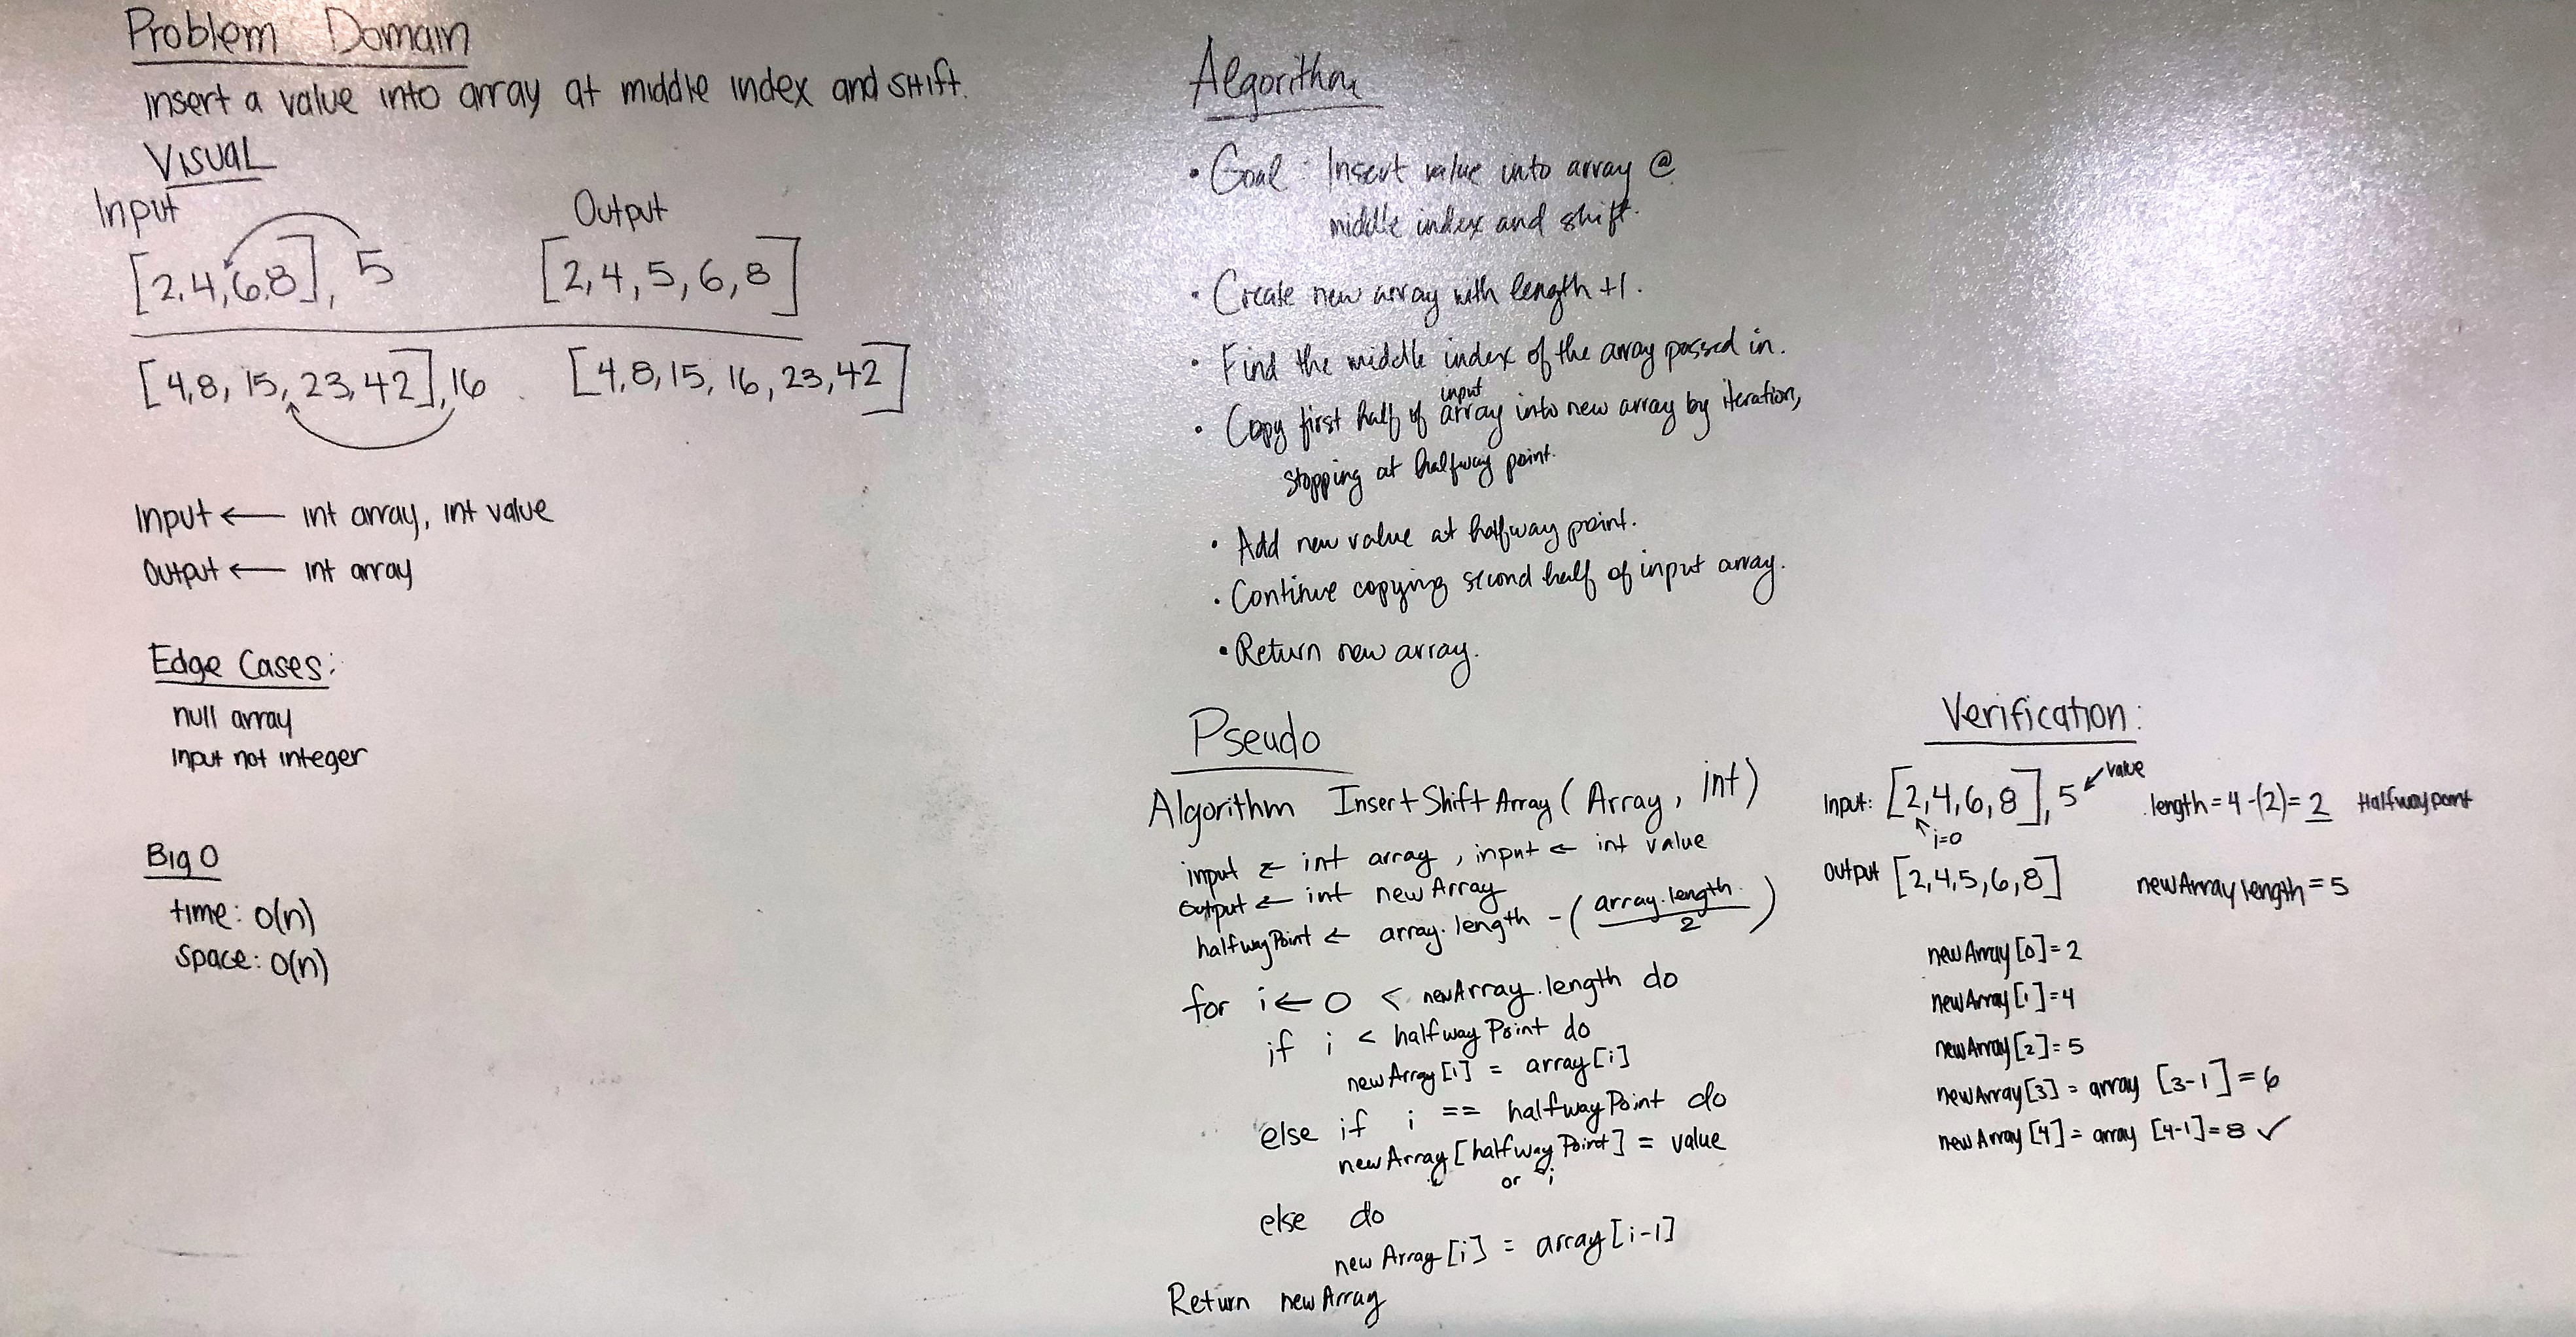 Problem Domain
insert a value into array at middle index and shift.
Visual
Input
Output
[2,4,6,8], 5
[2,4,5,6,8]
[4,8,15,23,42],16
[4,8,15,16,23,42]
Input ← int array, int value
Output ← int array
Edge Cases:
null array
input not integer
Big O
time: O(n)
space: O(n)
Algorithm
• Goal: Insert value into array @
middle index and shift.
• Create new array with length +1.
• Find the middle index of the array passed in.
input
• Copy first half of array into new array by iteration,
stopping at halfway point.
• Add new value at halfway point.
• Continue copying second half of input array.
• Return new array.
Pseudo
Algorithm InsertShiftArray(Array, int)
input ← int array, input ← int value
output ← int newArray
halfwayPoint ← array.length - (array.length / 2)
for i ← 0 < newArray.length do
if i < halfwayPoint do
newArray[i] = array[i]
else if i == halfwayPoint do
newArray[halfwayPoint] = value
or i
else do
newArray[i] = array[i-1]
Return newArray
Verification:
value
Input: [2,4,6,8], 5 length = 4-(2)= 2 Halfwaypoint
i=0
output [2,4,5,6,8] newArray length = 5
newArray[0]=2
newArray[1]=4
newArray[2]=5
newArray[3] = array [3-1]=6
newArray[4] = array [4-1]=8 ✓